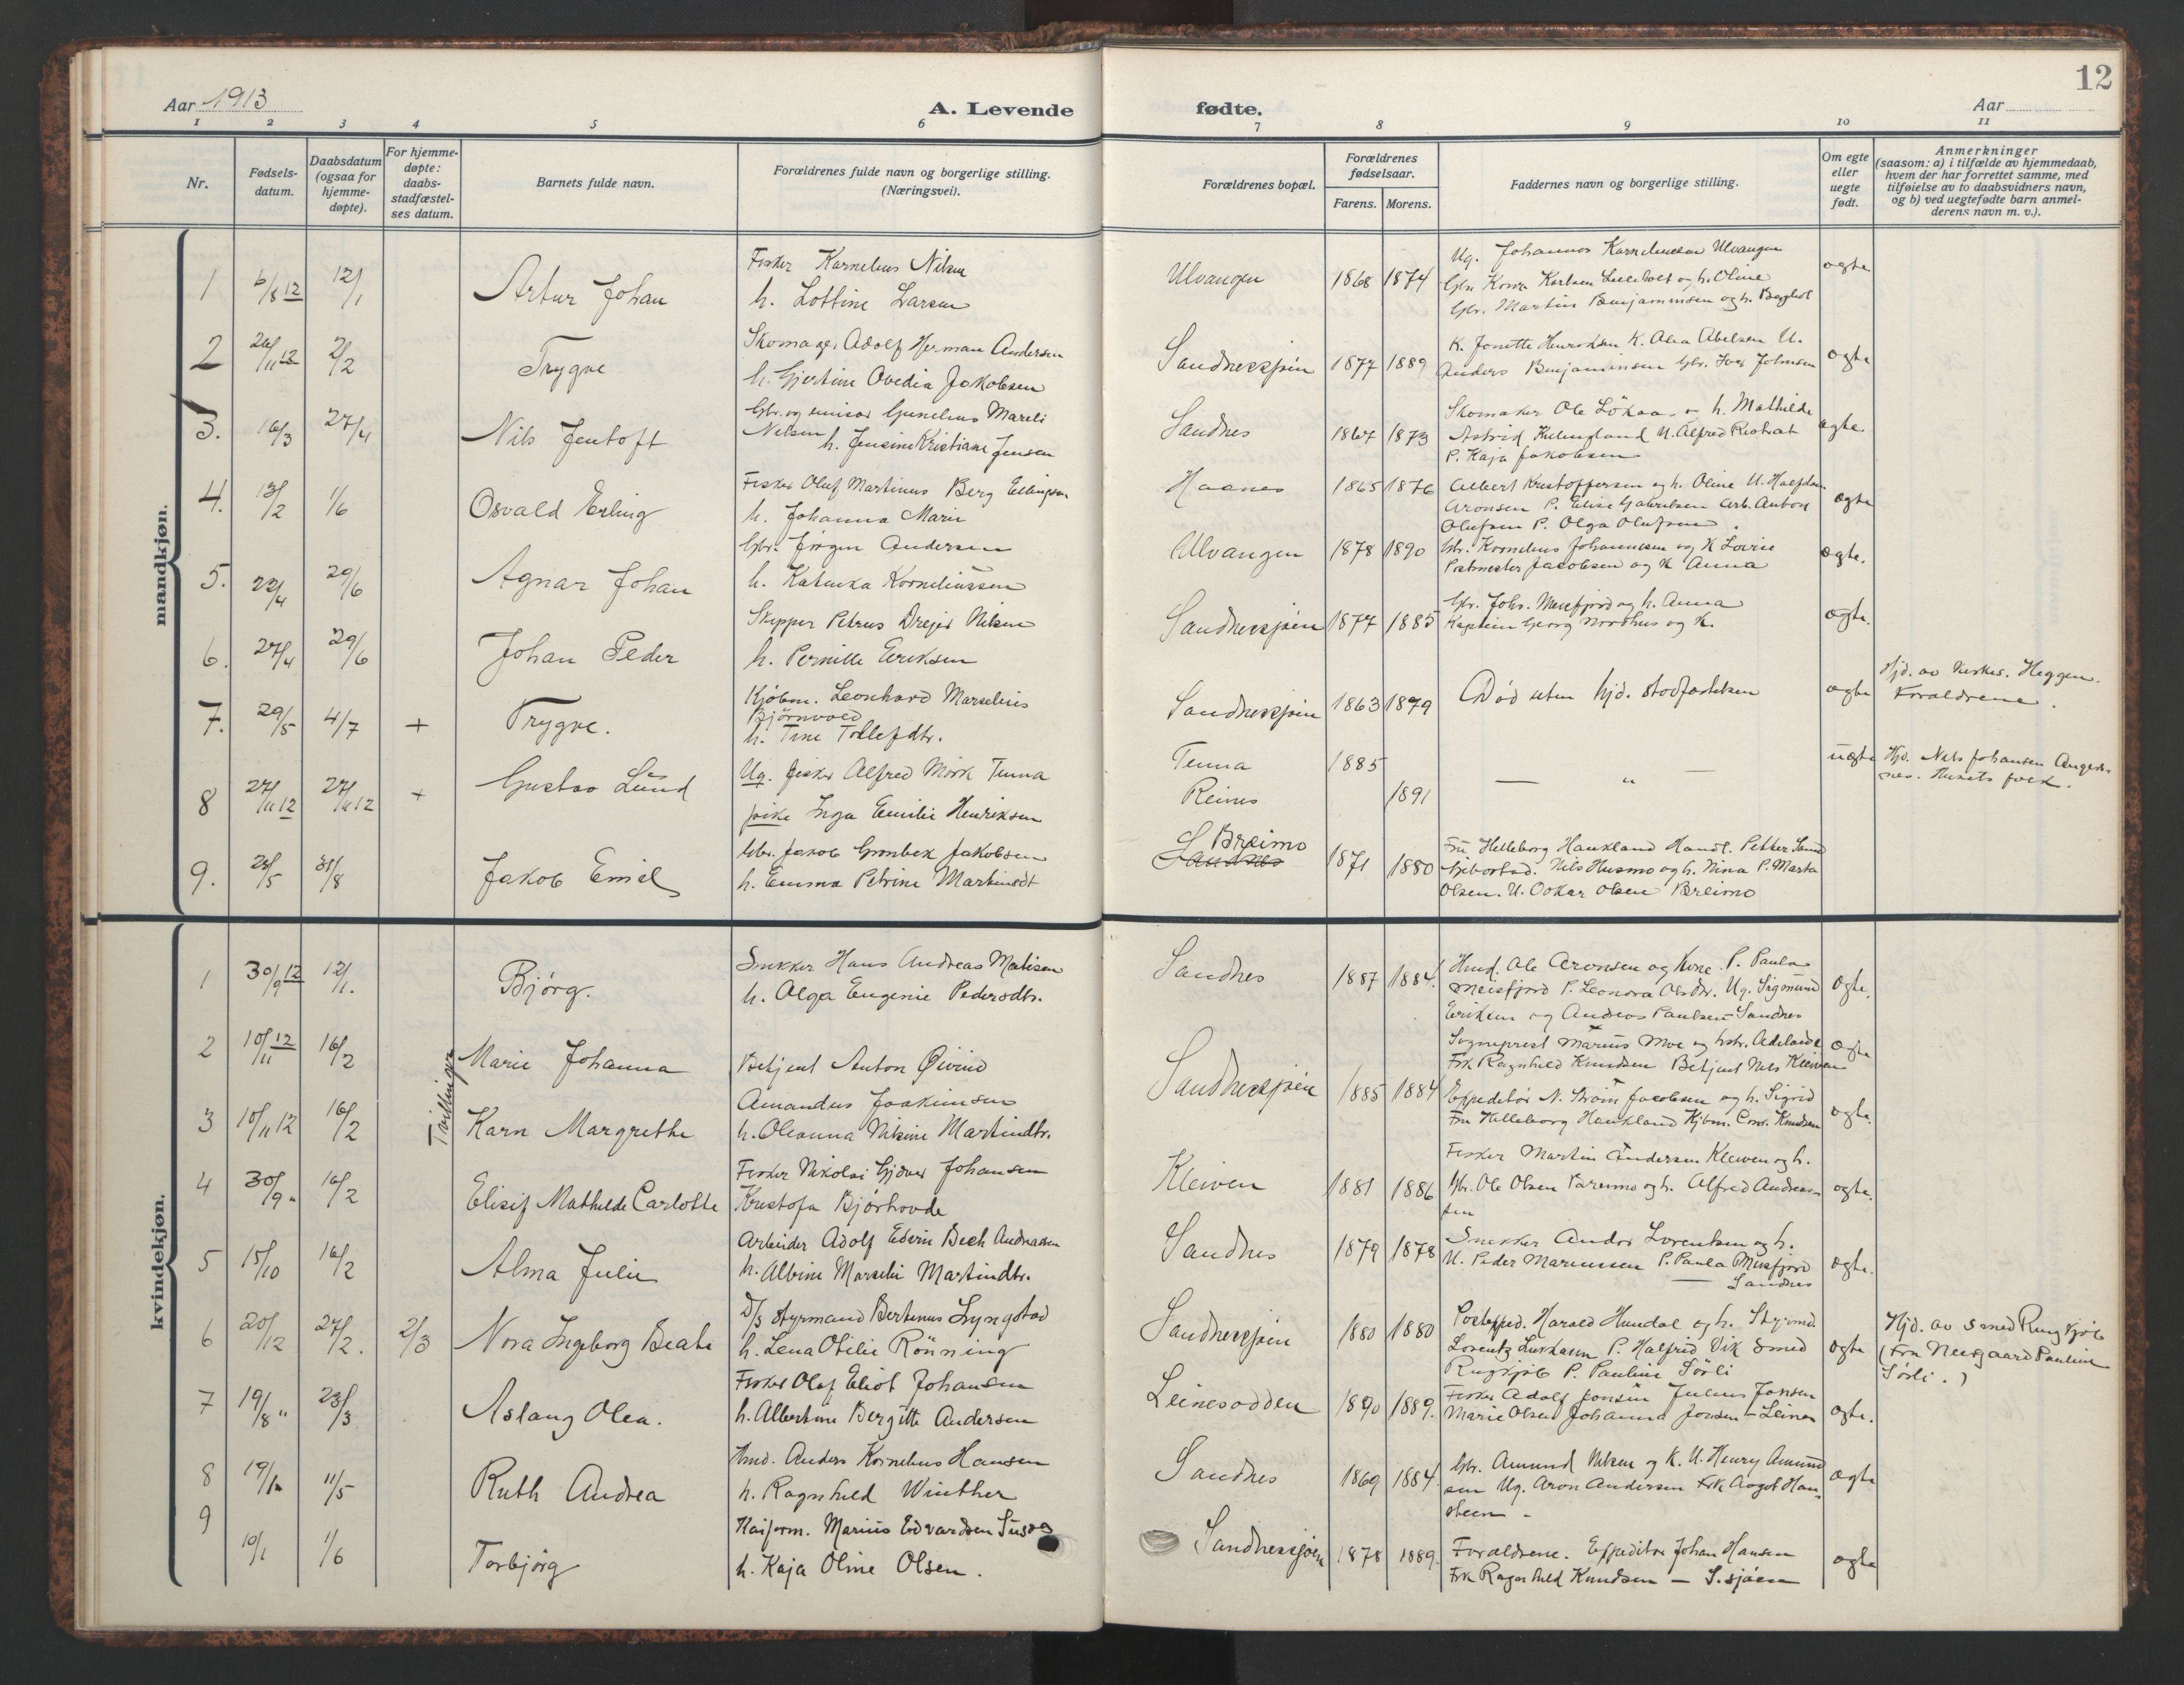 12
Aar 1913
A. Levende fødte.
Aar
1 2 3 4 5 6 7 8 9 10 11
Nr.
Fødsels-
datum.
Daabsdatum
(ogsaa for
hjemme-
døpte).
For hjemme-
døpte:
daabs-
stadfæstel-
ses datum.
Barnets fulde navn.
Forældrenes fulde navn og borgerlige stilling.
(Næringsvei).
Forældrenes bopæl.
Forældrenes
fødselsaar.
Farens. Morens.
Faddernes navn og borgerlige stilling.
Om egte
eller
uegte
født.
Anmerkninger
(saasom: a) i tilfælde av hjemmedaab,
hvem der har forrettet samme, med
tilføielse av to daabsvidners navn,
og b) ved uegtefødte barn anmel-
derens navn m. v.).
mandkjøn.
1 6/8 12 12/1 Artur Johan
Fisker Kornelius Nilsen
h. Lottine Larsen
Ulvangen 1868 1874
Ug. Johannes Korneliussen Ulvangen
Martin Benjaminsen og h.
egte
2 26/11 12 2/2 Trygve
Skomager Adolf Herman Andersen
h. Gjertine Ovedia Jakobsen
Sandnessjøen 1877 1889
K. Jonette Henriksen K. Alea Abelsen U.
Anders Benjaminsen Gbr. Iver Johnsen
egte
3. 16/3 27/4 Nils Jentoft
Gbr. og Mareli
Nilsen h. Jensine Kristiane Jensen
Sandnes 1867 1873
Skomaker Ole Lökaas og h. Mathilde
Astrid U. Alfred
P. Kaja Jakobsen
egte
4. 13/2 1/6 Osvald Erling
Fisker Oluf Martinus Berg Ellingsen
h. Johanna Marie
Haanes 1865 1876
Albert Kristoffersen og h. Oline U. Halfdan
Aronsen P. Elise Gabrielsen Arb. Anton
Olufsen P. Olga Olufsen.
egte
5. 22/4 29/6 Agnar Johan
Gbr. Jörgen Andersen
h. Katinka Korneliussen
Ulvangen 1878 1890
Gbr. Kornelius Johannesen og K Lovise
Postmester Jacobsen og K Anna
egte.
6. 27/4 29/6 Johan Peder
Skipper Petrus Drejer Nilsen
h. Pernille Eriksen
Sandnessjøen 1877 1885
Gbr. Johs. Meisfjord og h. Anna
Kaptein Georg Nordhus og K.
egte.
7. 29/5 4/7 + Trygve.
Kjøbm. Leonhard Marselius
Bjørnvold
h. Tine Tollefdtr.
Sandnessjøen 1863 1879
Död uten hjd. stadfæstelsen
egte
Hjd. av Kirkes. Heggen.
Forældrene.
8 27/11 12 27/11 12 + Gustav Lund
Ug. fisker Alfred Mörk Tenna
pike Inga Emilie Henriksen
Tenna 1885
Reines 1891
— " —
uegte
Hjd. Nils Johansen
nes. Husets folk.
9. 23/5 31/8 Jakob Emil
Gbr. Jakob Grønbek Jakobsen
h. Emma Petrine Martinsdt
Breimo
Sandnes
1871 1880
Fru Helleborg Haukland Handl. Petter Sund
Gibostad. Nils Husmo og h. Nina P. Marta
Olsen. U. Oskar Olsen Breimo
kvindekjøn.
1 30/9 12 12/1. Bjørg.
Snekker Hans Andreas Matisen
h. Olga Eugenie Pedersdtr.
Sandnes 1887 1884.
Hmd. Ole Aronsen og Kone. P. Paula
Meisfjord P. Leonora Olsdtr. Ug. Sigmund
Eriksen og Andreas Paulsen Sandnes
egte.
2 10/11 12 16/2 Marie Johanna
Tvillinger
Betjent Anton Øivind
Amandus Joakimsen
h. Oleanna Nilsine Martindtr.
3 10/11 12 16/2 Karn Margrethe
Sandnessjøen 1885 1884
Sogneprest Marius Moe og hstr. Adelaide
Frk Ragnhild Knudsen Betjent Nils Kleiven
Expeditör N. Ström Jacobsen og h. Sigrid
Fru Helleborg Haukland Kjbm. Conr. Knudsen
egte
egte.
4 30/9 " 16/2 Elisif Mathilde Carlotte
Fisker Nikolai Gjöver Johansen
Kristofa Bjørhovde
Kleiven 1881 1886
Fisker Martin Andersen Kleiven og h.
Gbr. Ole Olsen Breimo og h. Alfred Andreas-
sen
egte.
5 15/10 16/2 Alma Julie
Arbeider Adolf Edvin Bech Andreassen
h. Albine Marselie Martindtr.
Sandnes 1879 1878
Snekker Andor Lorentsen og h.
U. Peder Mariussen P. Paula Meisfjord
— Sandnes
egte.
6 20/12 27/2. 2/3 Nora Ingeborg Beate
D/S styrmand Bertinus Lyngstad
h. Lena Otilie Rönning
Sandnessjøen 1880 1880
Postexped. Harald Hundal og h. Styrmd.
Lorentz P. Halfrid Vik Smed
Ringkjöb P. Pauline Sörli
egte
Hjd. av Smed Ringkjöb
(Fru Neergaard Pauline
Sörli.)
7 19/8 " 23/3 Aslaug Olea.
Fisker Olaf Eliot Johansen
h. Albertine Bergitte Andersen
Leinesodden 1890 1889.
Fisker Adolf Jonsen Julius Jonsen
Marie Olsen Johanna Jonsen – Leines
egte.
8 11/5 Ruth Andrea
Hmd. Anders Kornelius Hansen
h. Ragnhild Winther
Sandnes 1869 1884.
Gbr. Amund Nilsen og K. U. Henry Amund
sen Ug. Aron Andersen Frk Aagot Han-
steen -
egte
9 10/1 1/6 Torbjörg
Kaiform. Marius Edvardsen
h. Kaja Oline Olsen.
Sandnessjøen 1878 1889.
Forældrene. Expeditör Johan Hansen
Frk Ragnhild Knudsen — S.sjøen
egte